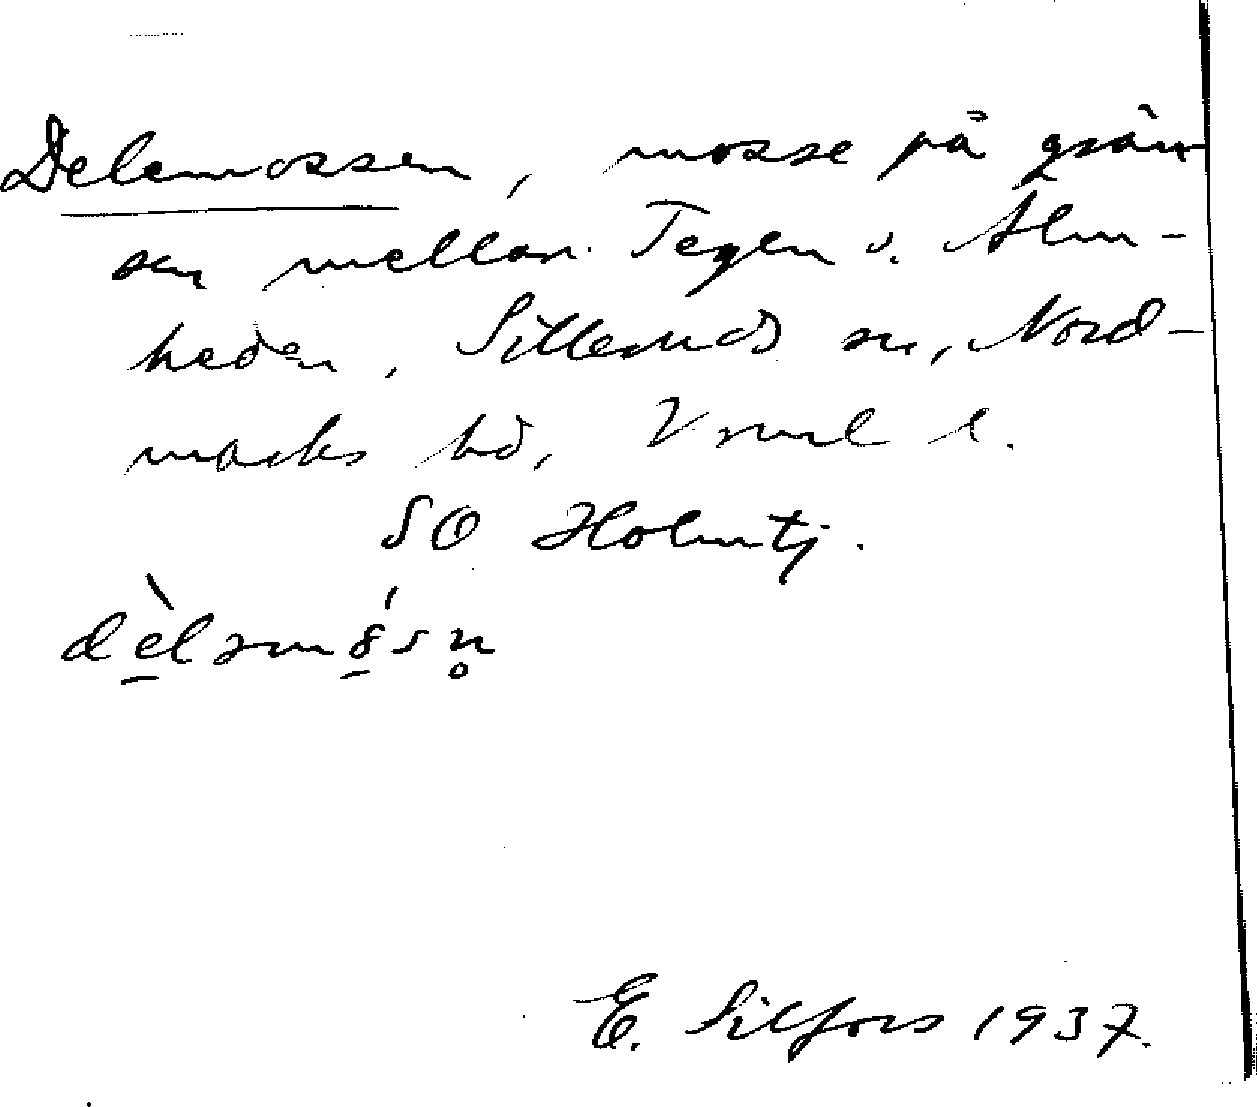 Delemossen, mosse på grän-
sen mellan Tegen o. Älm-
heden, Sillerud sn, Nord-
marks hd, Vrml l.
SO Holmtj.
E. Silfors 1937.